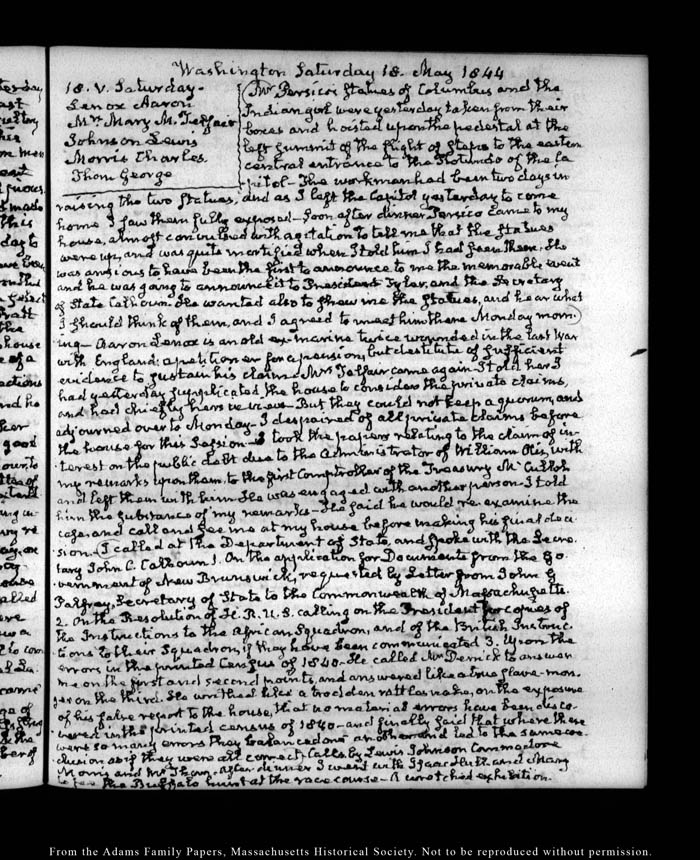 Washington Saturday 18. May 1844
18. V. Saturday.
Lenox Aaron
Mrs Mary M. Telfair
Johnson Lewis
Morris Charles.
Thom George
Mr Persico's Statues of Columbus and the
Indian girl were yesterday taken from their
boxes and hoisted upon the pedestal at the
left summit of the flight of Steps to the eastern
central entrance to the Rotundo of the Ca
pitol – The workman had been two days in
raising the two Statues, and as I left the Capitol yesterday to come
home I saw them fully exposed – Soon after dinner Persico came to my
house, almost convulsed with agitation to tell me that the Statues
were up, and was quite mortified when I told him I had seen them. He
was anxious to have been the first to announce to me the memorable event
and he was going to announce it to President Tyler, and the Secretary
of State Calhoun. He wanted also to shew me the Statues, and hear what
I should think of them, and I agreed to meet him there Monday morn-
ing – Aaron Lenox is an old ex-marine twice wounded in the last War
with England: a petitioner for a pension, but destitute of sufficient
evidence to sustain his claim – Mrs Telfair came again – I told her I
had yesterday supplicated the house to consider the private claims,
and had chiefly hers in view – But they could not keep a quorum, and
adjourned over to Monday – I despaired of all private claims before
the house for this Session – I took the papers relating to the claim of in-
terest on the public debt due to the Administrator of William Otis, with
my remarks upon them, to the first Comptroller of the Treasury Mr Culloh
and left them with him – He was engaged with another person – I told
him the substance of my remarks – He said he would re-examine the
case, and call and see me at my house before making his final deci-
sion – I called at the Department of State, and spoke with the Secre-
tary John C. Calhoun 1. On the application for Documents from the Go-
vernment of New Brunswick, requested by Letter from John G
Palfrey, Secretary of State to the Commonwealth of Massachusetts.
2. On the Resolution of H. R. U. S. calling on the President for copies of
the Instructions to the African Squadron, and of the British Instruc-
tions to their Squadron, if they have been communicated 3. Upon the
errors in the printed Census of 1840 – He called Mr Derrick to answer
me on the first and second points, and answered like a true slave-mon-
ger on the third. He writhed like a trodden rattlesnake, on the exposure
of his false report to the house, that no material errors have been disco-
vered in the printed census of 1840 – and finally said that where there
were so many errors they balanced one another and led to the same con-
clusion as if they were all correct. Calls by Lewis Johnson Commodore
Morris and Mr Thom. After dinner I went with Isaac Hull and Mary
to see the Buffalo hunt at the race course – A wretched exhibition.
From the Adams Family Papers, Massachusetts Historical Society. Not to be reproduced without permission.